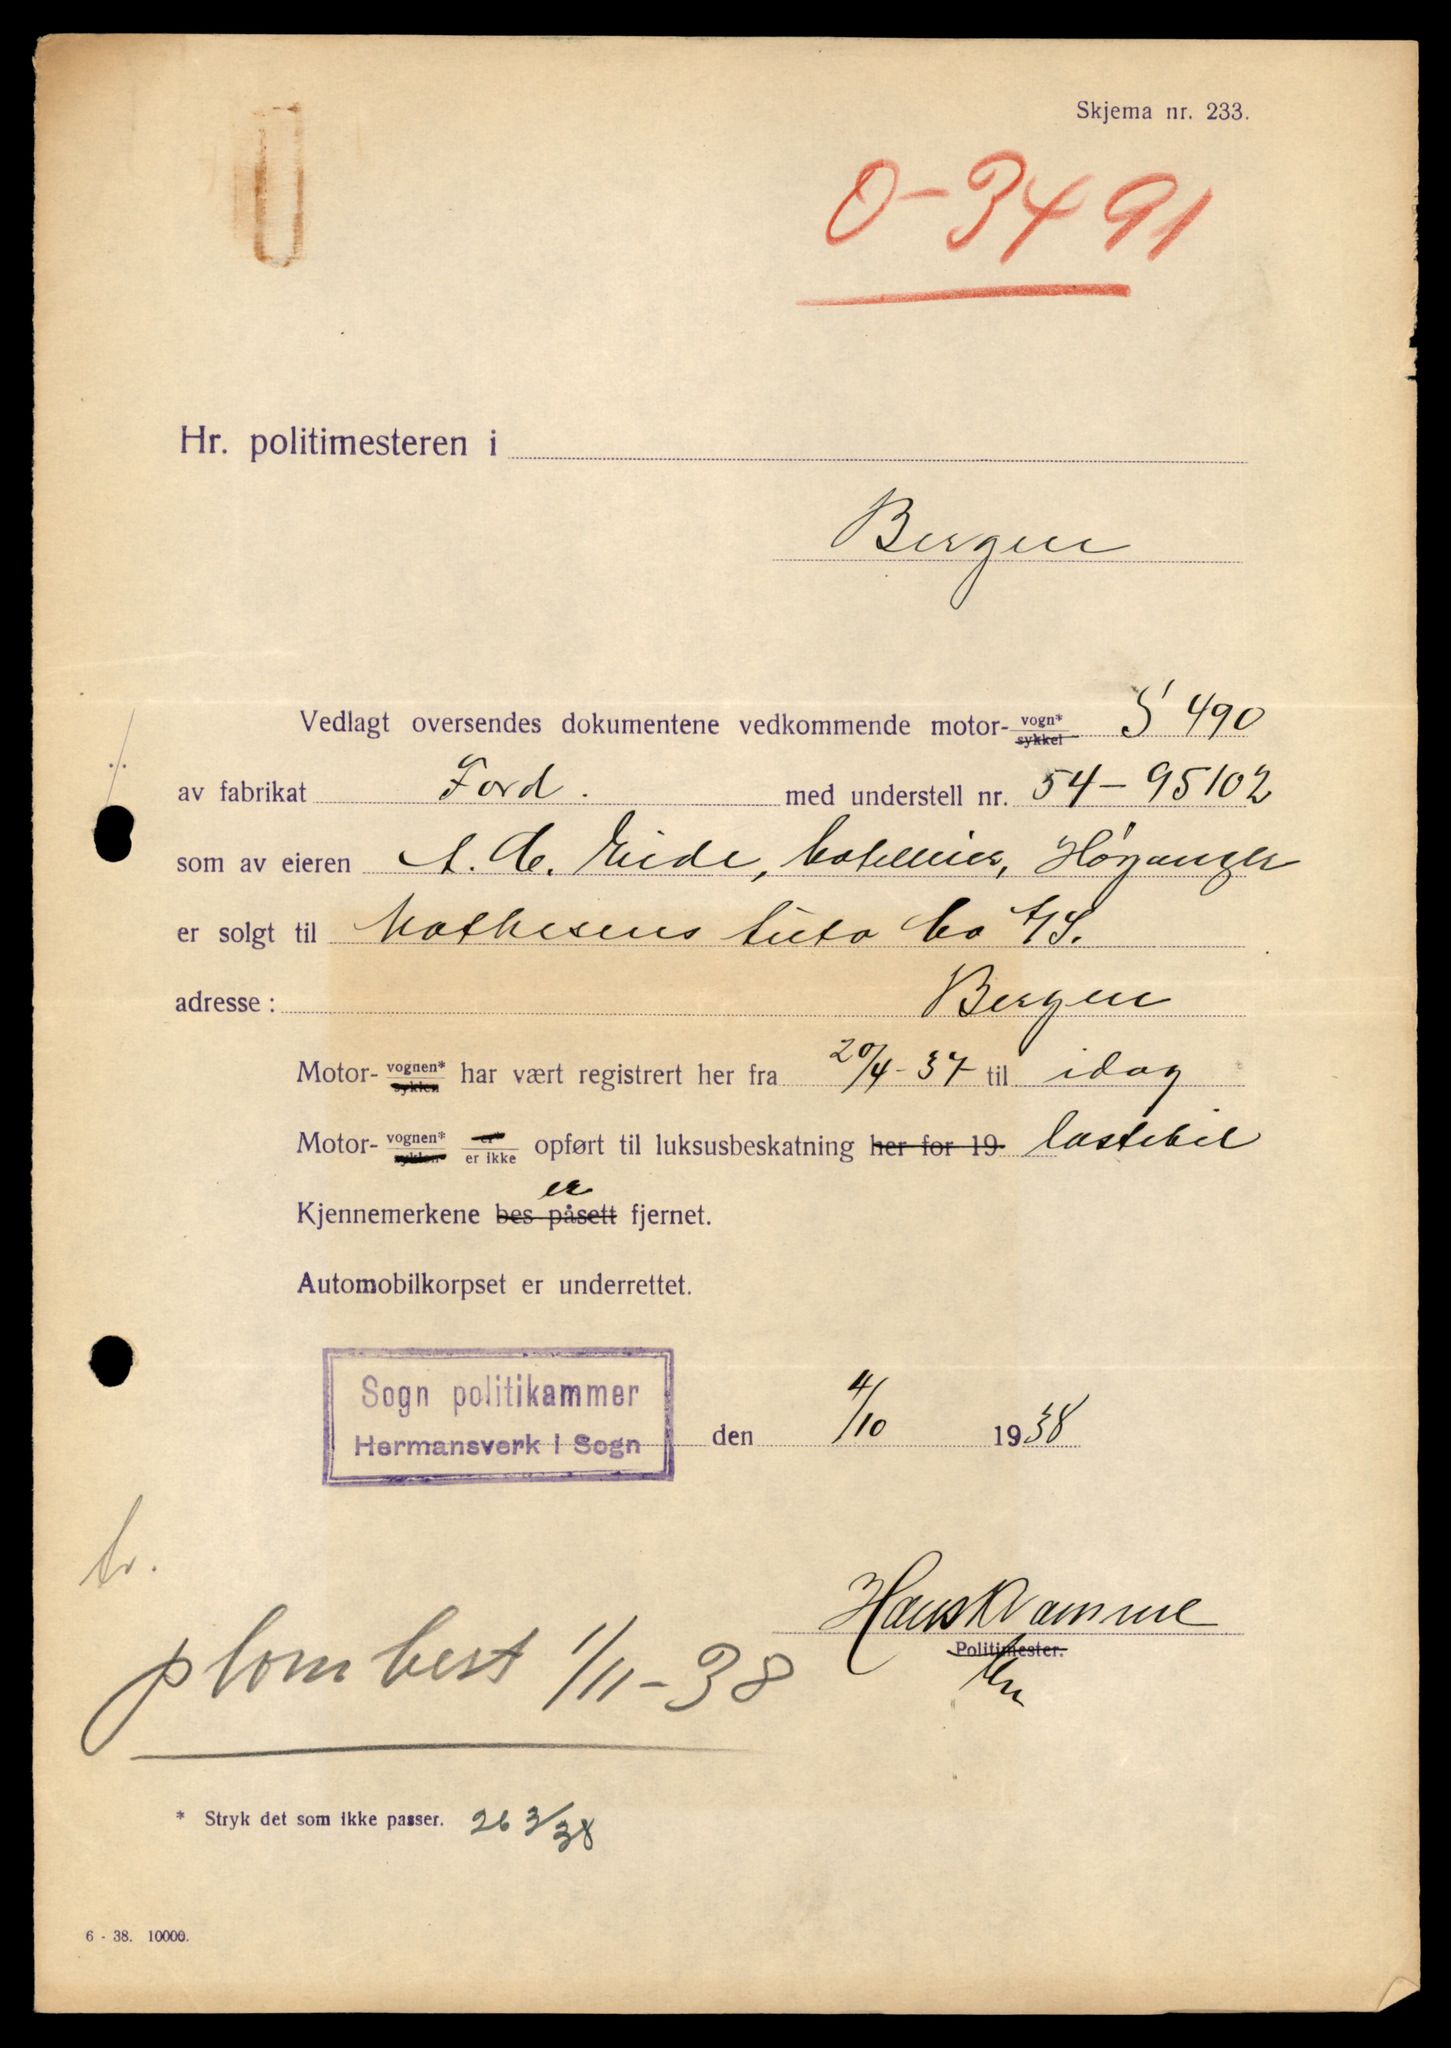 Skjema nr. 233.
O-3491
Hr. politimesteren i
Bergen
Vedlagt oversendes dokumentene vedkommende motor- vogn* sykkel S 490
av fabrikat Ford. med understell nr. 54-95102
som av eieren A. Eide, Høyanger
er solgt til Mathesens Auto Co A/S.
adresse: Bergen
Motor- vognen* sykklen har vært registrert her fra 20/4-37 til idag
Motor- vognen* sykklen er er ikke opført til luksusbeskatning her for 19 lastebil
er
Kjennemerkene bes påsett fjernet.
Automobilkorpset er underrettet.
Sogn politikammer
Hermansverk i Sogn den 4/10 1938
Hans Kvamme
Politimester.
plombest 1/11-38
* Stryk det som ikke passer. 26 3/38
6 - 38. 10000.